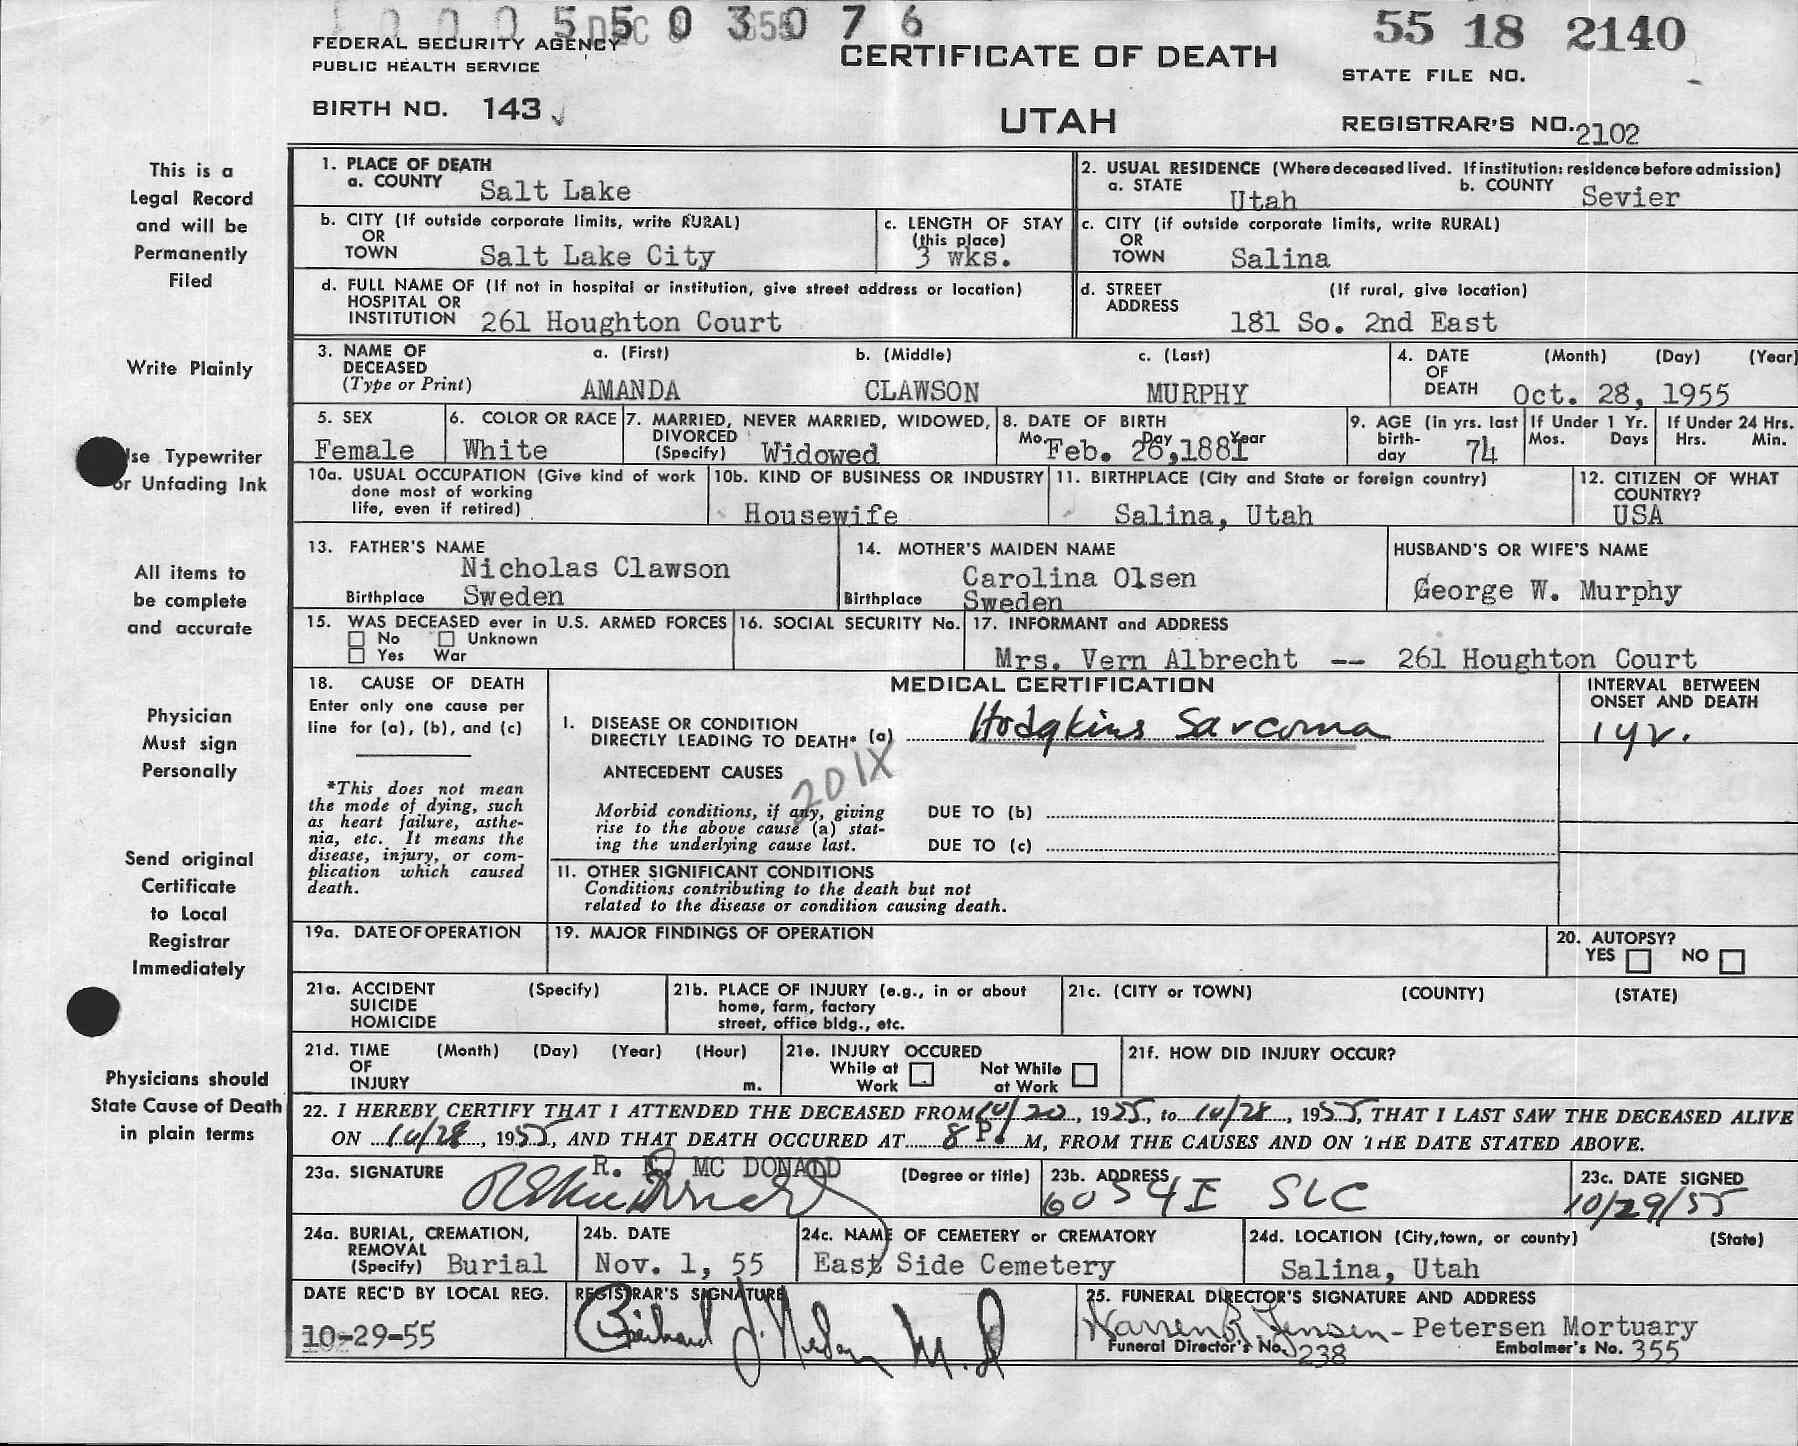 1 0 0 0 5 5 0 3 0 7 6
55 18 2140
FEDERAL SECURITY AGENCY
PUBLIC HEALTH SERVICE
CERTIFICATE OF DEATH
STATE FILE NO.
BIRTH NO. 143
UTAH
REGISTRAR'S NO. 2102
This is a
Legal Record
and will be
Permanently
Filed
Write Plainly
Use Typewriter
or Unfading Ink
All items to
be complete
and accurate
Physician
Must sign
Personally
Send original
Certificate
to Local
Registrar
Immediately
Physicians should
State Cause of Death
in plain terms
1. PLACE OF DEATH
a. COUNTY Salt Lake
2. USUAL RESIDENCE (Where deceased lived. If institution: residence before admission)
a. STATE Utah b. COUNTY Sevier
b. CITY (If outside corporate limits, write RURAL)
OR
TOWN Salt Lake City
c. LENGTH OF STAY
(this place)
3 wks.
c. CITY (if outside corporate limits, write RURAL)
OR
TOWN Salina
d. FULL NAME OF (If not in hospital or institution, give street address or location)
HOSPITAL OR
INSTITUTION 261 Houghton Court
d. STREET (If rural, give location)
ADDRESS
181 So. 2nd East
3. NAME OF
DECEASED
(Type or Print)
a. (First) b. (Middle) c. (Last)
AMANDA CLAWSON MURPHY
4. DATE (Month) (Day) (Year)
OF
DEATH Oct. 28, 1955
5. SEX
Female
6. COLOR OR RACE
White
7. MARRIED, NEVER MARRIED, WIDOWED,
DIVORCED
(Specify) Widowed
8. DATE OF BIRTH
Mo. Day Year
Feb. 26, 1881
9. AGE (in yrs. last
birth-
day 74
If Under 1 Yr.
Mos. Days
If Under 24 Hrs.
Hrs. Min.
10a. USUAL OCCUPATION (Give kind of work
done most of working
life, even if retired)
10b. KIND OF BUSINESS OR INDUSTRY
Housewife
11. BIRTHPLACE (City and State or foreign country)
Salina, Utah
12. CITIZEN OF WHAT
COUNTRY?
USA
13. FATHER'S NAME
Nicholas Clawson
Birthplace Sweden
14. MOTHER'S MAIDEN NAME
Carolina Olsen
Birthplace Sweden
HUSBAND'S OR WIFE'S NAME
George W. Murphy
15. WAS DECEASED ever in U.S. ARMED FORCES
No Unknown
Yes War
16. SOCIAL SECURITY No.
17. INFORMANT and ADDRESS
Mrs. Vern Albrecht -- 261 Houghton Court
18. CAUSE OF DEATH
Enter only one cause per
line for (a), (b), and (c)
*This does not mean
the mode of dying, such
as heart failure, asthe-
nia, etc. It means the
disease, injury, or com-
plication which caused
death.
MEDICAL CERTIFICATION
INTERVAL BETWEEN
ONSET AND DEATH
I. DISEASE OR CONDITION
DIRECTLY LEADING TO DEATH* (a) Hodgkins Sarcoma
1 yr.
ANTECEDENT CAUSES
201X
Morbid conditions, if any, giving
rise to the above cause (a) stat-
ing the underlying cause last.
DUE TO (b)
DUE TO (c)
II. OTHER SIGNIFICANT CONDITIONS
Conditions contributing to the death but not
related to the disease or condition causing death.
19a. DATE OF OPERATION
19. MAJOR FINDINGS OF OPERATION
20. AUTOPSY?
YES NO
21a. ACCIDENT (Specify)
SUICIDE
HOMICIDE
21b. PLACE OF INJURY (e.g., in or about
home, farm, factory
street, office bldg., etc.
21c. (CITY or TOWN) (COUNTY) (STATE)
21d. TIME (Month) (Day) (Year) (Hour)
OF
INJURY m.
21e. INJURY OCCURED
While at Work
Not While at Work
21f. HOW DID INJURY OCCUR?
22. I HEREBY CERTIFY THAT I ATTENDED THE DECEASED FROM 10/20, 1955, to 10/28, 1955, THAT I LAST SAW THE DECEASED ALIVE
ON 10/28, 1955, AND THAT DEATH OCCURED AT 8 P. M, FROM THE CAUSES AND ON THE DATE STATED ABOVE.
23a. SIGNATURE (Degree or title)
MC DONALD
23b. ADDRESS
SLC
23c. DATE SIGNED
10/29/55
24a. BURIAL, CREMATION,
REMOVAL
(Specify) Burial
24b. DATE
Nov. 1, 55
24c. NAME OF CEMETERY or CREMATORY
East Side Cemetery
24d. LOCATION (City, town, or county) (State)
Salina, Utah
DATE REC'D BY LOCAL REG.
10-29-55
REGISTRAR'S SIGNATURE
25. FUNERAL DIRECTOR'S SIGNATURE AND ADDRESS
Warren R. Jensen - Petersen Mortuary
Funeral Director's No. 238
Embalmer's No. 355